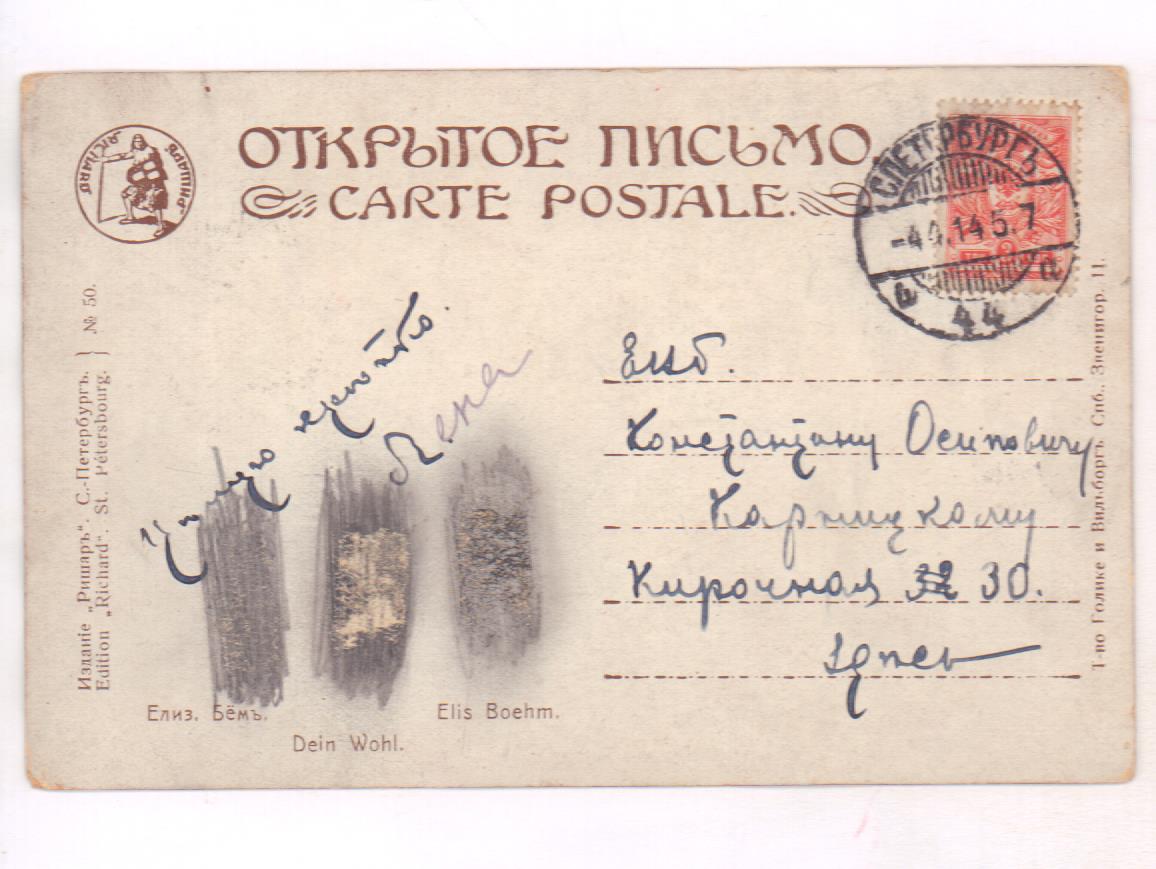 ОТКРЫТОЕ ПИСЬМО
CARTE POSTALE.
РИШАРЪ
RICHARD
С.ПЕТЕРБУРГЪ
-4 4.14 5. 7
44
Изданіе „Ришаръ“. С.-Петербургъ. } № 50.
Edition „Richard“. St. Pétersbourg.
Целую крѣпко.
Лена
Е.И.В.
Константину Осиповичу
Карпицкому
Кирочная 30.
Здѣсь
Елиз. Бёмъ.
Elis Boehm.
Dein Wohl.
Т-во Голике и Вильборгъ. Спб., Звенигор. 11.